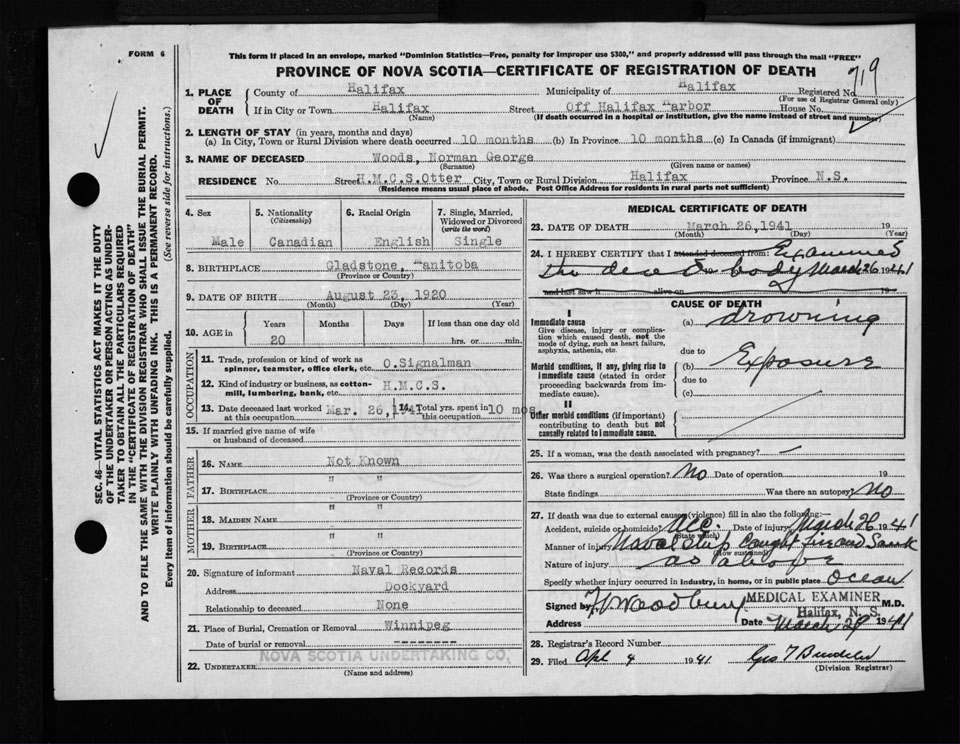 FORM 6
This form if placed in an envelope, marked "Dominion Statistics—Free, penalty for improper use $300," and properly addressed will pass through the mail "FREE"
PROVINCE OF NOVA SCOTIA—CERTIFICATE OF REGISTRATION OF DEATH
719
SEC. 46—VITAL STATISTICS ACT MAKES IT THE DUTY
OF THE UNDERTAKER OR PERSON ACTING AS UNDER-
TAKER TO OBTAIN ALL THE PARTICULARS REQUIRED
IN THE "CERTIFICATE OF REGISTRATION OF DEATH"
AND TO FILE THE SAME WITH THE DIVISION REGISTRAR WHO SHALL ISSUE THE BURIAL PERMIT.
WRITE PLAINLY WITH UNFADING INK. THIS IS A PERMANENT RECORD.
Every item of information should be carefully supplied. (See reverse side for instructions.)
1. PLACE OF DEATH
County of Halifax Municipality of Halifax Registered No.
(For use of Registrar General only)
If in City or Town Halifax Street Off Halifax Harbor House No.
(Name) (If death occurred in a hospital or institution, give the name instead of street and number)
2. LENGTH OF STAY (in years, months and days)
(a) In City, Town or Rural Division where death occurred 10 months (b) In Province 10 months (c) In Canada (if immigrant)
3. NAME OF DECEASED Woods, Norman George
(Surname) (Given name or names)
RESIDENCE No. Street H.M.C.S.Otter City, Town or Rural Division Halifax Province N.S.
(Residence means usual place of abode. Post Office Address for residents in rural parts not sufficient)
4. Sex 5. Nationality 6. Racial Origin 7. Single, Married,
(Citizenship) Widowed or Divorced
(write the word)
Male Canadian English Single
8. BIRTHPLACE Gladstone, Manitoba
(Province or Country)
9. DATE OF BIRTH August 23, 1920
(Month) (Day) (Year)
10. AGE in Years Months Days If less than one day old
20 hrs. or min.
OCCUPATION
11. Trade, profession or kind of work as
spinner, teamster, office clerk, etc. O.Signalman
12. Kind of industry or business, as cotton-
mill, lumbering, bank, etc. H.M.C.S.
13. Date deceased last worked Mar. 26,1941 14. Total yrs. spent in 10 mos
at this occupation this occupation
15. If married give name of wife
or husband of deceased
FATHER
16. NAME Not Known
17. BIRTHPLACE " "
(Province or Country)
MOTHER
18. MAIDEN NAME " "
19. BIRTHPLACE " "
(Province or Country)
20. Signature of informant Naval Records
Address Dockyard
Relationship to deceased None
21. Place of Burial, Cremation or Removal Winnipeg
Date of burial or removal --------
22. UNDERTAKER NOVA SCOTIA UNDERTAKING CO.
(Name and address)
MEDICAL CERTIFICATE OF DEATH
23. DATE OF DEATH March 26,1941 19
(Month) (Day) (Year)
24. I HEREBY CERTIFY that I attended deceased from: Examined
the dead body March 26 1941
and last saw h alive on 19
CAUSE OF DEATH
I
Immediate cause (a) drowning
Give disease, injury or complica-
tion which caused death, not the
mode of dying, such as heart failure,
asphyxia, asthenia, etc. due to
Morbid conditions, if any, giving rise to (b) Exposure
immediate cause (stated in order due to
proceeding backwards from im-
mediate cause). (c)
II
Other morbid conditions (if important)
contributing to death but not
causally related to immediate cause.
25. If a woman, was the death associated with pregnancy? —
26. Was there a surgical operation? No Date of operation 19
State findings Was there an autopsy? No
27. If death was due to external causes (violence) fill in also the following:
Accident, suicide or homicide? Acc. Date of injury March 26 1941
(State which)
Manner of injury Naval ship caught fire and Sank
(How sustained)
Nature of injury as above
Specify whether injury occurred in industry, in home, or in public place Ocean
Signed by MEDICAL EXAMINER M.D.
Halifax, N. S.
Address Date March 29 1941
28. Registrar's Record Number
29. Filed Apl 4 1941 Geo T
(Division Registrar)